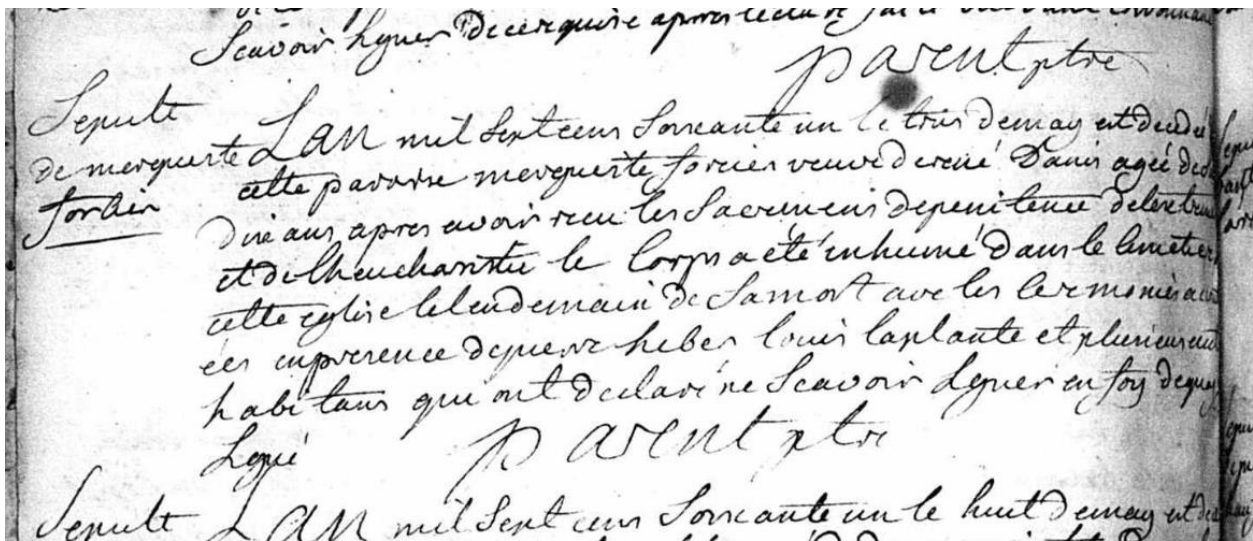 Scavoir Signer De ce requise apres lecture
parent ptre
Sepult
de merguerite
forcier
LAN mil Sept cens Soixante un le trois de may est decedé
cette paroisse merguerite forcier veuve de rené Danis agée de
dix ans apres avoir receu les Sacremens de penitence de lextreme
et de lheucharistie le Corps a eté inhumé Dans le Cimetier
cette eglise le lendemain de Sa mort avec les Ceremonies
ées en presence de pierre heber louis laplante et plusieurs
habitans qui ont declaré ne Scavoir Signer en foy de quoy
Signé
parent ptre
Sepult
LAN mil Sept cens Soixante un le huit de may est